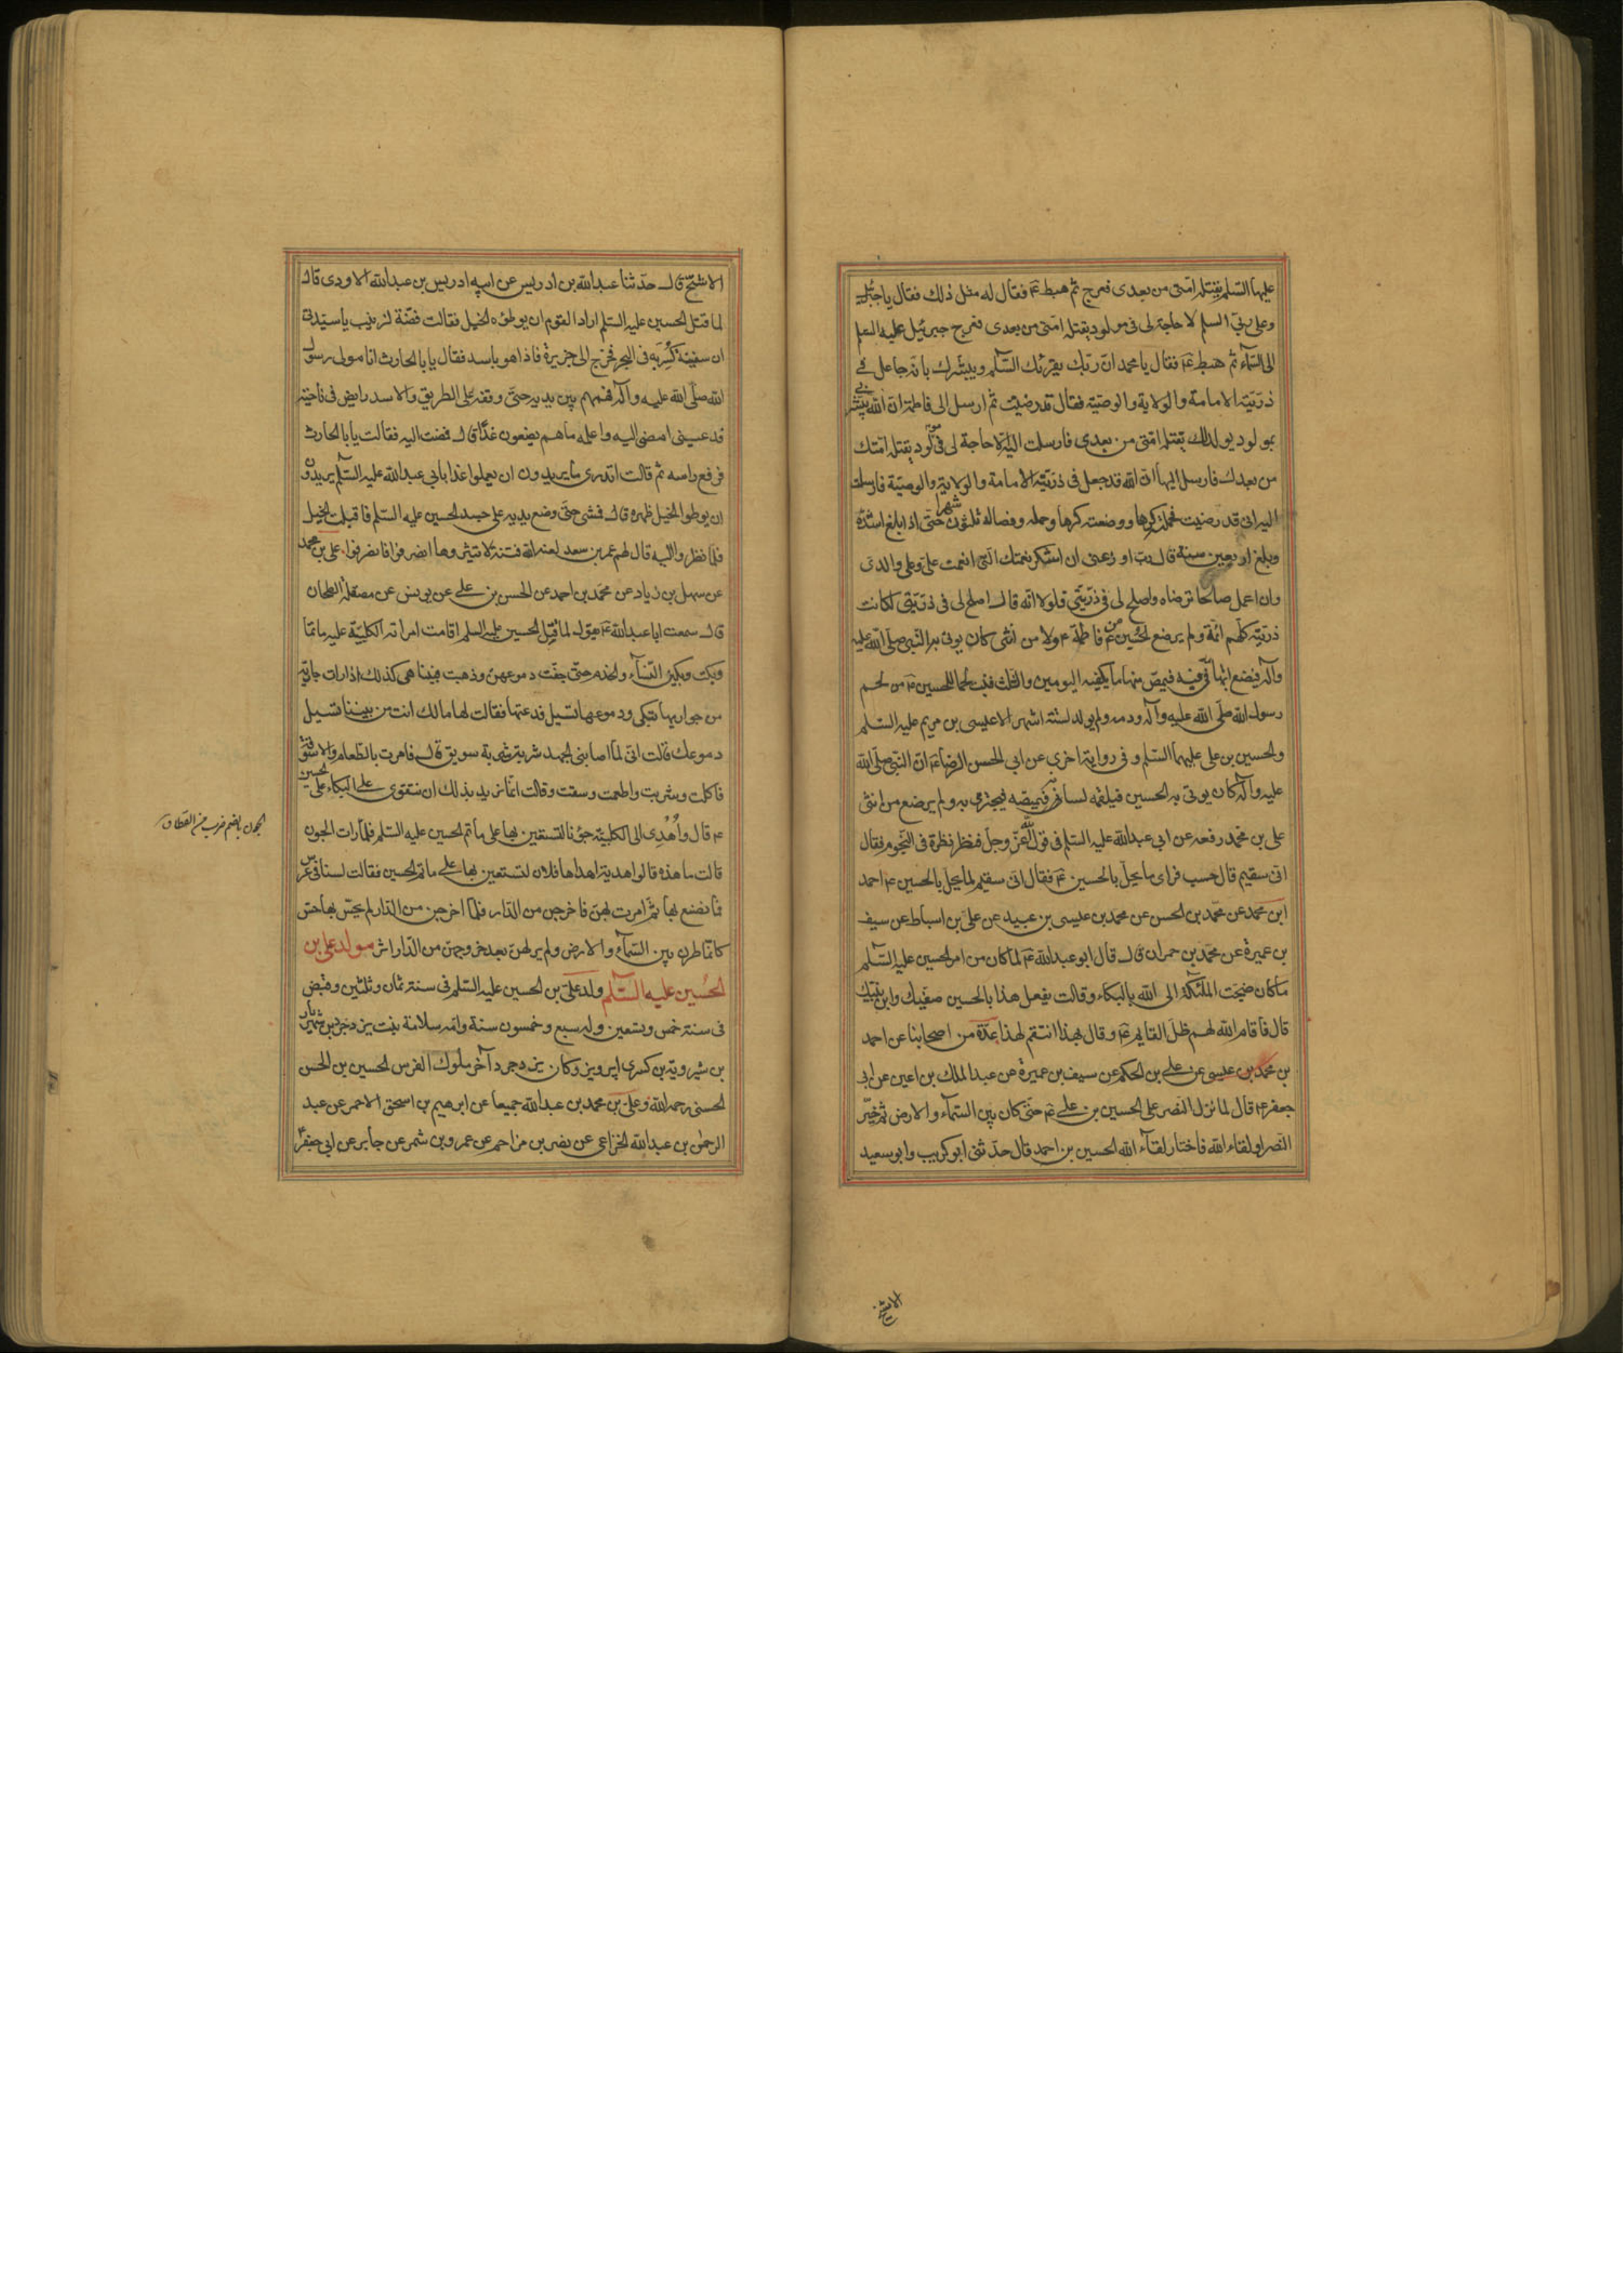 عليها السلم تقتله امتى من بعدى فعرج ثم هبط ع‍ فقال له مثل ذلك فقال يا جبرئيل
وعلى ربى السلم لا حاجة لى فى مولود يقتله امتى من بعدى فعرج جبرئيل عليه السلم
الى السماء ثم هبط ع‍ فقال يا محمد ان ربك يقرئك السلم ويبشرك بانه جاعل فى
ذريته الامامة والولاية والوصية فقال قد رضيت ثم ارسل الى فاطمة ان الله يبشرنى
بمولود يولد لك يقتله امتى من بعدى فارسلت اليه لا حاجة لى فى مولود يقتله امتك
من بعدك فارسل اليها ان الله قد جعل فى ذريته الامامة والولاية والوصية فارسلت
اليه انى قد رضيت فحملته كرها ووضعته كرها وحمله وفصاله ثلثون شهرا حتى اذا بلغ اشده
وبلغ اربعين سنة قال رب اوزعنى ان اشكر نعمتك التى انعمت على وعلى والدى
وان اعمل صالحا ترضاه واصلح لى فى ذريتى فلولا انه قال اصلح لى فى ذريتى لكانت
ذريته كلهم ائمة ولم يرضع الحسين ع‍ من فاطمة ع‍ ولا من انثى كان يؤتى به النبى صلى الله عليه
وآله فيضع ابهامه فى فيه فيمص منها ما يكفيه اليومين والثلث فنبت لحما للحسين ع‍ من لحم
رسول الله صلى الله عليه وآله ودمه ولم يولد لستة اشهر الا عيسى بن مريم عليه السلم
والحسين بن على عليهما السلم وفى رواية اخرى عن ابى الحسن الرضا ع‍ ان النبى صلى الله
عليه وآله كان يوتى به الحسين فيلقمه لسانه فيمصه فيجتزى به ولم يرضع من انثى
على بن محمد رفعه عن ابى عبدالله عليه السلم فى قول الله عز وجل فنظر نظرة فى النجوم فقال
انى سقيم قال حسب فراى ما يحل بالحسين ع‍ فقال انى سقيم لما يحل بالحسين ع‍ احمد
ابن محمد عن محمد بن الحسن عن محمد بن عيسى بن عبيد عن على بن اسباط عن سيف
بن عميرة عن محمد بن حمران قال قال ابو عبدالله ع‍ لما كان من امر الحسين عليه السلم
ما كان ضجت الملئكة الى الله بالبكاء وقالت يفعل هذا بالحسين صفيك وابن نبيك
قال فاقام الله لهم ظل القايم ع‍ وقال بهذا انتقم لهذا عدة من اصحابنا عن احمد
بن محمد بن عيسى عن على بن الحكم عن سيف بن عميرة عن عبد الملك بن اعين عن ابى
جعفر ع‍ قال لما نزل النصر على الحسين بن على ع‍ حتى كان بين السماء والارض ثم خير
النصر او لقاء الله فاختار لقاء الله الحسين بن احمد قال حدثنى ابو كريب وابو سعيد
الاشج
الاشج قال حدثنا عبدالله بن ادريس عن ابيه ادريس بن عبدالله الاودى قال
لما قتل الحسين عليه السلم اراد القوم ان يوطؤه الخيل فقالت فضة لزينب يا سيدتى
ان سفينة كسر به فى البحر فخرج الى جزيرة فاذا هو باسد فقال يا با الحارث انا مولى رسول
الله صلى الله عليه وآله فهمهم بين يديه حتى وقفه على الطريق والاسد رابض فى ناحية
فدعينى امضى اليه واعلمه ما هم يصنعون غدا قال فمضت اليه فقالت يا با الحارث
فرفع راسه ثم قالت اتدرى ما يريدون ان يعملوا غدا بابى عبدالله عليه السلم يريدون
ان يوطوا الخيل ظهره قال فمشى حتى وضع يديه على جسد الحسين عليه السلم فاقبلت الخيل
فلما نظروا اليه قال لهم عمر بن سعد لعنه الله فتنة لا تثيروها انصرفوا فانصرفوا على بن محمد
عن سهل بن زياد عن محمد بن احمد عن الحسن بن على عن يونس عن مصقلة الطحان
قال سمعت ابا عبدالله ع‍ يقول لما قتل الحسين عليه السلم اقامت امراته الكلبية عليه ماتما
وبكت وبكين النساء والخدم حتى جفت دموعهن وذهبت فبينا هى كذلك اذا رات جارية
من جواريها تبكى ودموعها تسيل فدعتها فقالت لها مالك انت من بيننا تسيل
دموعك قالت انى لما اصابنى الجهد شربت شربة سويق قال فامرت بالطعام والاسوقة
فاكلت وشربت واطعمت وسقت وقالت انما نريد بذلك ان نتقوى على البكاء على الحسين
ع‍ قال واهدى الى الكلبية جؤنا لتستعين بها على ماتم الحسين عليه السلم فلما رات الجون
قالت ما هذه قالوا هدية اهداها فلان لتستعين بها على ماتم الحسين فقالت لسنا فى عرس
فما نصنع بها ثم امرت بهن فاخرجن من الدار فلما اخرجن من الدار لم يحس بها حس
كانما طرن بين السماء والارض ولم ير لهن بعد خروجهن من الدار اثر مولد على بن
الحسين عليه السلم ولد على بن الحسين عليه السلم فى سنة ثمان وثلثين وقبض
فى سنة خمس وتسعين وله سبع وخمسون سنة وامه سلامة بنت يزدجرد بن شهريار
بن شيرويه بن كسرى ابرويز وكان يزدجرد آخر ملوك الفرس الحسين بن الحسن
الحسنى رحمه الله وعلى بن محمد بن عبدالله جميعا عن ابرهيم بن اسحق الاحمر عن عبد
الرحمن بن عبدالله الخزاعى عن نصر بن مزاحم عن عمرو بن شمر عن جابر عن ابى جعفر ع‍
الجون بالضم ضرب من القطا ق